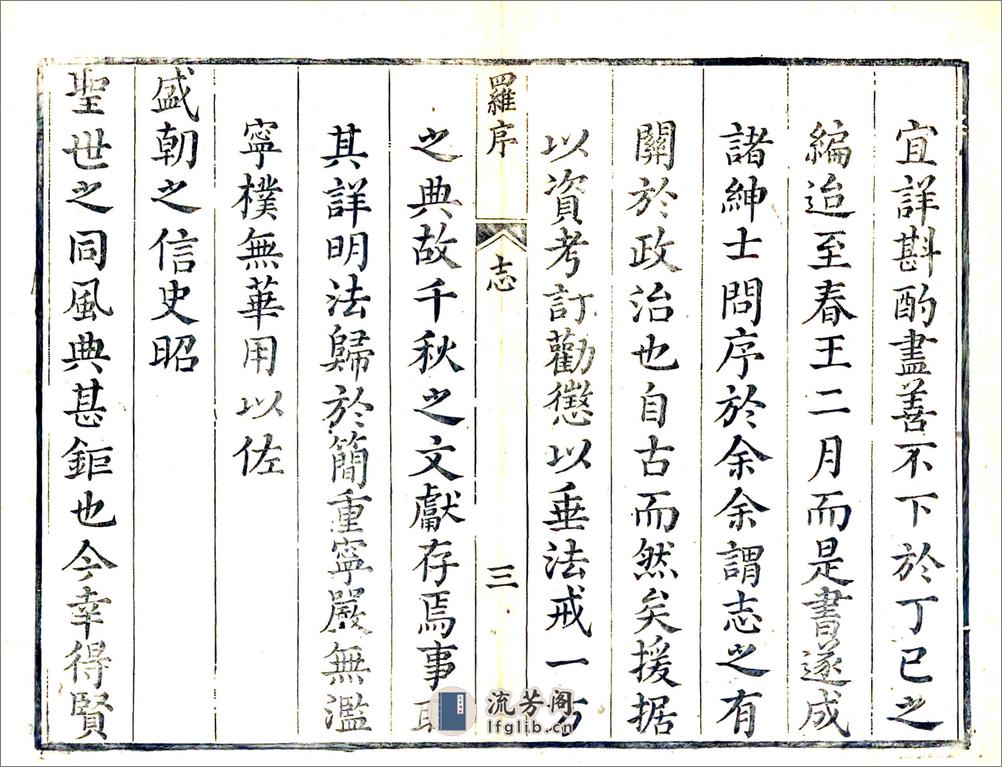 宜詳斟酌盡善不下於丁巳之
編迨至春王二月而是書遂成
諸紳士問序於余余謂志之有
關於政治也自古而然矣援据
以資考訂勸懲以垂法戒一方
羅序 志 三
之典故千秋之文獻存焉事取
其詳明法歸於簡重寧嚴無濫
寧樸無華用以佐
盛朝之信史昭
聖世之同風典甚鉅也今幸得賢
流芳阁
lfglib.cn